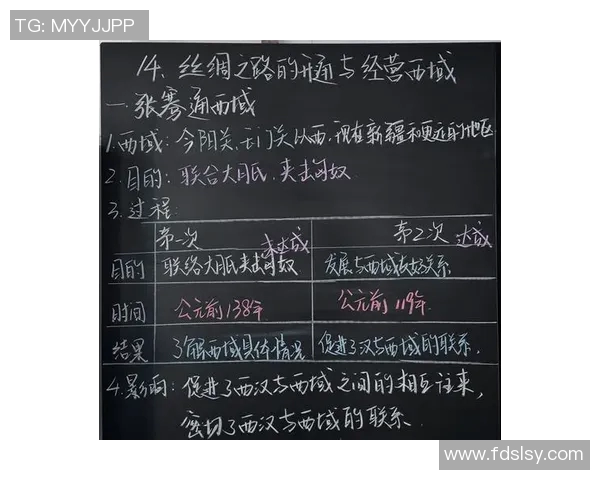 TG: MYYJJPP
14、丝绸之路的开通与经营西域
一.张骞通西域
1.西域：今阳关、玉门关以西，现在新疆和更远的地区
2.目的：联合大月氏，夹击匈奴
3.过程：
第一次 未达成 第2次 达成
目的 联络大月氏夹击匈奴 发展与西域友好关系
时间 公元前138年 公元前119年
结果 了解西域具体情况 促进了汉与西域的联系.
4.影响：促进了西汉与西域之间的相互往来，
密切了西汉与西域的联系.
www.fdslsy.com